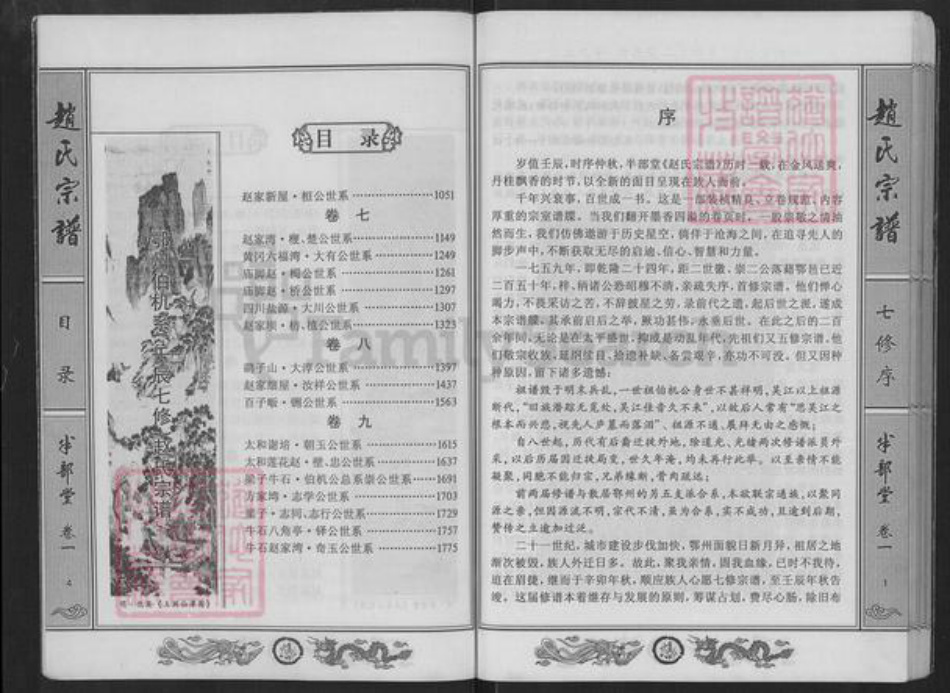 趙氏宗譜
目录
半部堂 卷一
4
目 录
赵家新屋·桓公世系 1051
卷 七
赵家湾·櫆、楚公世系 1149
黄冈六福湾·大有公世系 1249
庙脚赵·楬公世系 1261
庙脚赵·桥公世系 1297
四川盐源·大川公世系 1307
赵家坝·枋、植公世系 1323
卷 八
鸡子山·大淳公世系 1397
赵家细屋·汝祥公世系 1437
百子畈·朝公世系 1563
卷 九
太和谢培·朝玉公世系 1615
太和莲花赵·璧、忠公世系 1637
梁子牛石·伯机公总系崇公世系 1691
方家垴·志学公世系 1703
梁子·志同、志行公世系 1729
牛石八角亭·铎公世系 1757
牛石赵家湾·奇玉公世系 1775
序
岁值壬辰,时序仲秋,半部堂《赵氏宗谱》历时一载,在金风送爽,
丹桂飘香的时节,以全新的面目呈现在族人面前。
千年兴衰事,百世成一书。这是一部装帧精良、立卷规范、内容
厚重的宗室谱牒。当我们翻开墨香四溢的卷页时,一股崇敬之情油
然而生,我们仿佛遨游于历史星空,徜徉于沧海之间,在追寻先人的
脚步声中,不断获取无尽的启迪、信心、智慧和力量。
一七五九年,即乾隆二十四年,距二世徽、崇二公落籍鄂邑已近
二百五十年,梓、柄诸公恐昭穆不清,亲疏失序,首修宗谱。他们惮心
竭力,不畏采访之苦,不辞跋星之劳,录前代之遗,起后世之派,遂成
本宗谱牒。其承前启后之举,厥功甚伟,永垂后世。在此之后的二百
余年间,无论是在太平盛世,抑或是动乱年代,先祖们又五修宗谱,他
们敬宗收族,延纲续目,拾遗补缺,备尝艰辛,亦功不可没。但又因种
种原因,留下诸多遗憾:
祖谱毁于明末兵乱,一世祖伯机公身世不甚祥明,吴江以上祖源
断代,“旧族潜踪无觅处,吴江佳音久不来”,以故后人常有“思吴江之
根本而兴悲,视先人庐墓而落泪”、祖源不通、展拜无由之感慨;
自八世起,历代有后裔迁徙外地,除道光、光绪两次修谱派员外
采,以后历届因迁徙局变,世久年淹,均未再行此举。以至亲情不能
凝聚,同胞不能归宗,兄弟缘断,骨肉疏远;
前两届修谱与散居鄂州的另五支派合系,本欲联宗通族,以聚同
源之亲,但因源流不明,宗代不清,虽为合系,实不成功,且逾到后期,
赞传之立逾加过泛。
二十一世纪,城市建设步伐加快,鄂州面貌日新月异,祖居之地
渐次被毁,族人外迁日多。故此,聚我亲情,固我血缘,已时不我待,
迫在眉睫,继而于辛卯年秋,顺应族人心愿七修宗谱,至壬辰年秋告
竣。这届修谱本着继存与发展的原则,筹谋占划,费尽心肠,除旧布
趙氏宗譜
七修序
半部堂 卷一
1